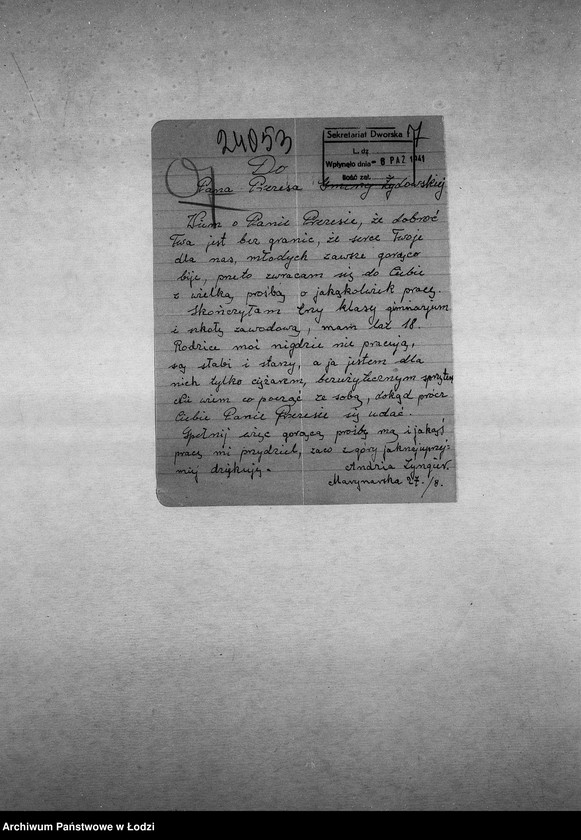 24053
Sekretariat Dworska
L. dz.
Wpłynęło dnia 6 PAŹ 1941
Ilość zał.
Do
Pana Prezesa Gminy Żydowskiej
Wiem o Panie Prezesie, że dobroć
Twa jest bez granic, że serce Twoje
dla nas, młodych zawsze gorąco
bije, przeto zwracam się do Ciebie
z wielką prośbą o jakąkolwiek pracę.
Skończyłam trzy klasy gimnazjum
i szkołę zawodową, mam lat 18.
Rodzice moi nigdzie nie pracują,
są słabi i starzy, a ja jestem dla
nich tylko ciężarem, bezużytecznym sprzętem
Nie wiem co począć ze sobą, dokąd prócz
Ciebie Panie Prezesie się udać.
Spełnij więc gorącą prośbę mą i jakąś
pracę mi przydziel, zaco z góry jaknajuprzej-
miej dziękuję.
Andzia Zyngier.
Marynarska 27./8.
Archiwum Państwowe w Łodzi